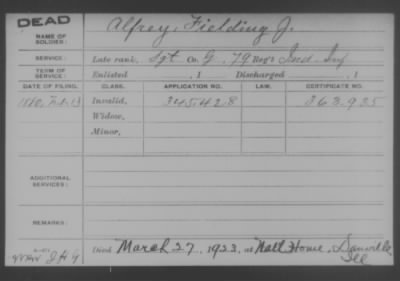 DEAD
NAME OF SOLDIER: Alfrey, Fielding J.
SERVICE: Late rank, Sgt Co. G, 79 Reg't Ind Inf
TERM OF SERVICE: Enlisted , 1 Discharged , 1
DATE OF FILING. CLASS. APPLICATION NO. LAW. CERTIFICATE NO.
1880, Feb. 13 Invalid, 345.428 363.925
Widow,
Minor,
ADDITIONAL SERVICES:
REMARKS:
Died March 27, 1923, at Natl Home, Danville, Ill